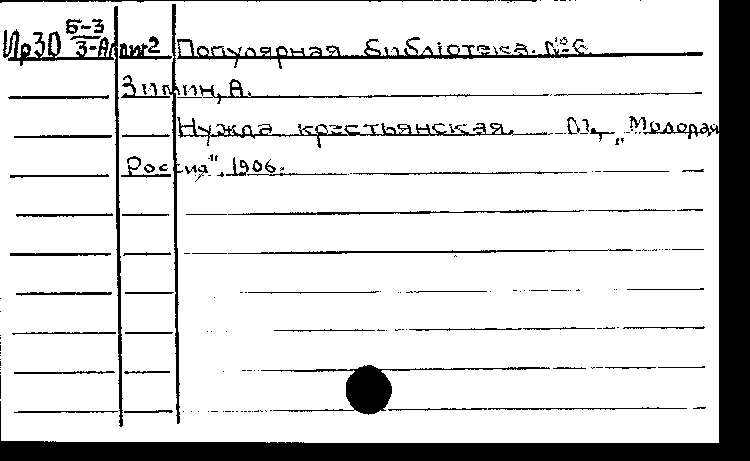 Б-3
Ир30 3-А лиж2 Популярная библіотека. №6
Зимин, А.
Нужда крестьянская. М., „Молодая
Россия", 1906.